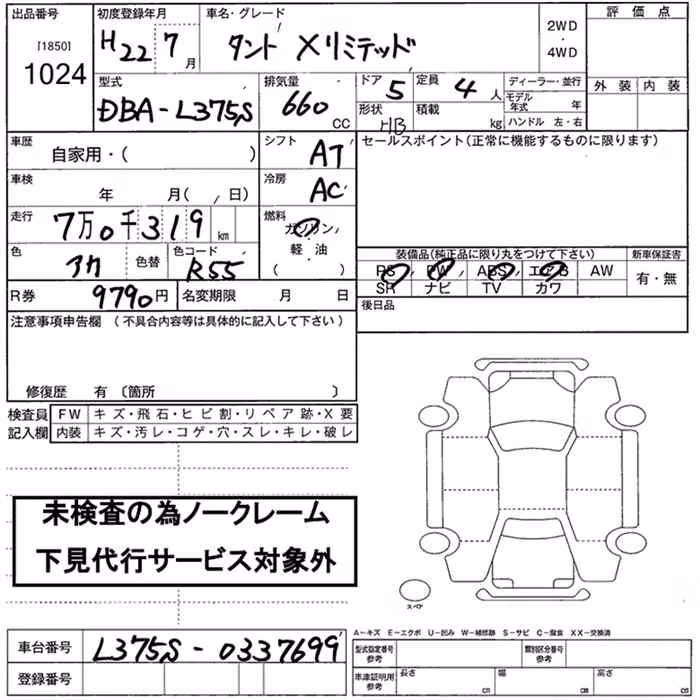 出品番号
[1850]
1024
初度登録年月
H22 7月
車名・グレード
タント Xリミテッド
2WD
・
4WD
評価点
外装 内装
型式
DBA-L375S
排気量
660
CC
ドア 5
定員 4 人
形状 HB
積載 kg
ディーラー・並行
モデル年式 年
ハンドル 左・右
車歴
自家用・( )
シフト
AT
セールスポイント(正常に機能するものに限ります)
車検
年 月( , 日)
冷房
AC
走行
7万0千319 km
燃料
ガソリン
軽・油
( )
色
アカ
色替
色コード
R55
装備品(純品に限り丸をつけて下さい)
新車保証書
PS PW ABS エアB AW
SR ナビ TV カワ
有・無
R券 9790円
名変期限 月 日
後日品
注意事項申告欄 (不具合内容等は具体的に記入して下さい)
修復歴 有 〔箇所 〕
検査員
記入欄
FW キズ・飛石・ヒビ割・リペア跡・X要
内装 キズ・汚レ・コゲ・穴・スレ・キレ・破レ
未検査の為ノークレーム
下見代行サービス対象外
スペア
A-キズ E-エクボ U-凹み W-補修跡 S-サビ C-腐食 XX-交換済
車台番号 L375S-0337699
登録番号
型式指定番号
参考
類別区分番号
参考
車庫証明用
参考
長さ cm
幅 cm
高さ cm